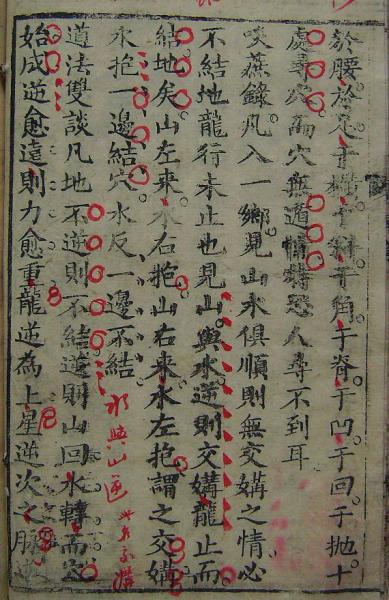 於腰於足于橫于斜于角于脊于凹于回于拋十
處尋穴為穴無遁情特恐人尋不到耳
啖蔗錄凡入一鄉見山水俱順則無交媾之情必
不結地龍行未止也見山與水逆則交媾龍止而
結地矣山左來水右抱山右來水左抱謂之交媾
水抱一邊結穴水反一邊不結
水與山逆
道法雙談凡地不逆則不結逆則山回水轉而穴
始成逆愈遠則力愈重龍逆為上星逆次之脉